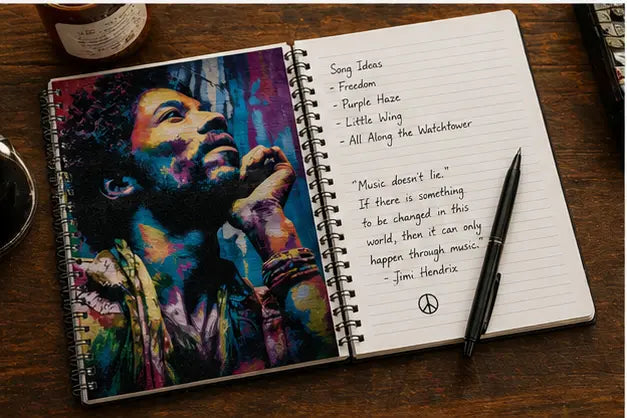 Song Ideas
- Freedom
- Purple Haze
- Little Wing
- All Along the Watchtower
"Music doesn't lie."
If there is something
to be changed in this
world, then it can only
happen through music."
- Jimi Hendrix